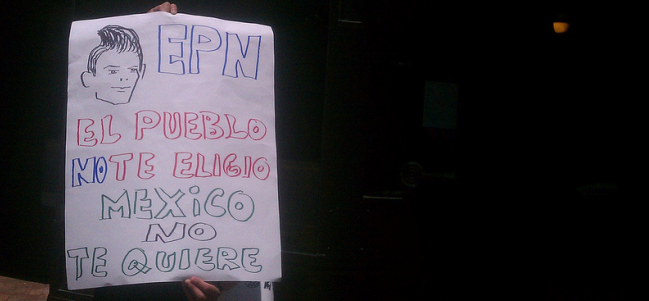 EPN
EL PUEBLO
NO TE ELIGIO
MEXiCO
NO
TE QUIERE